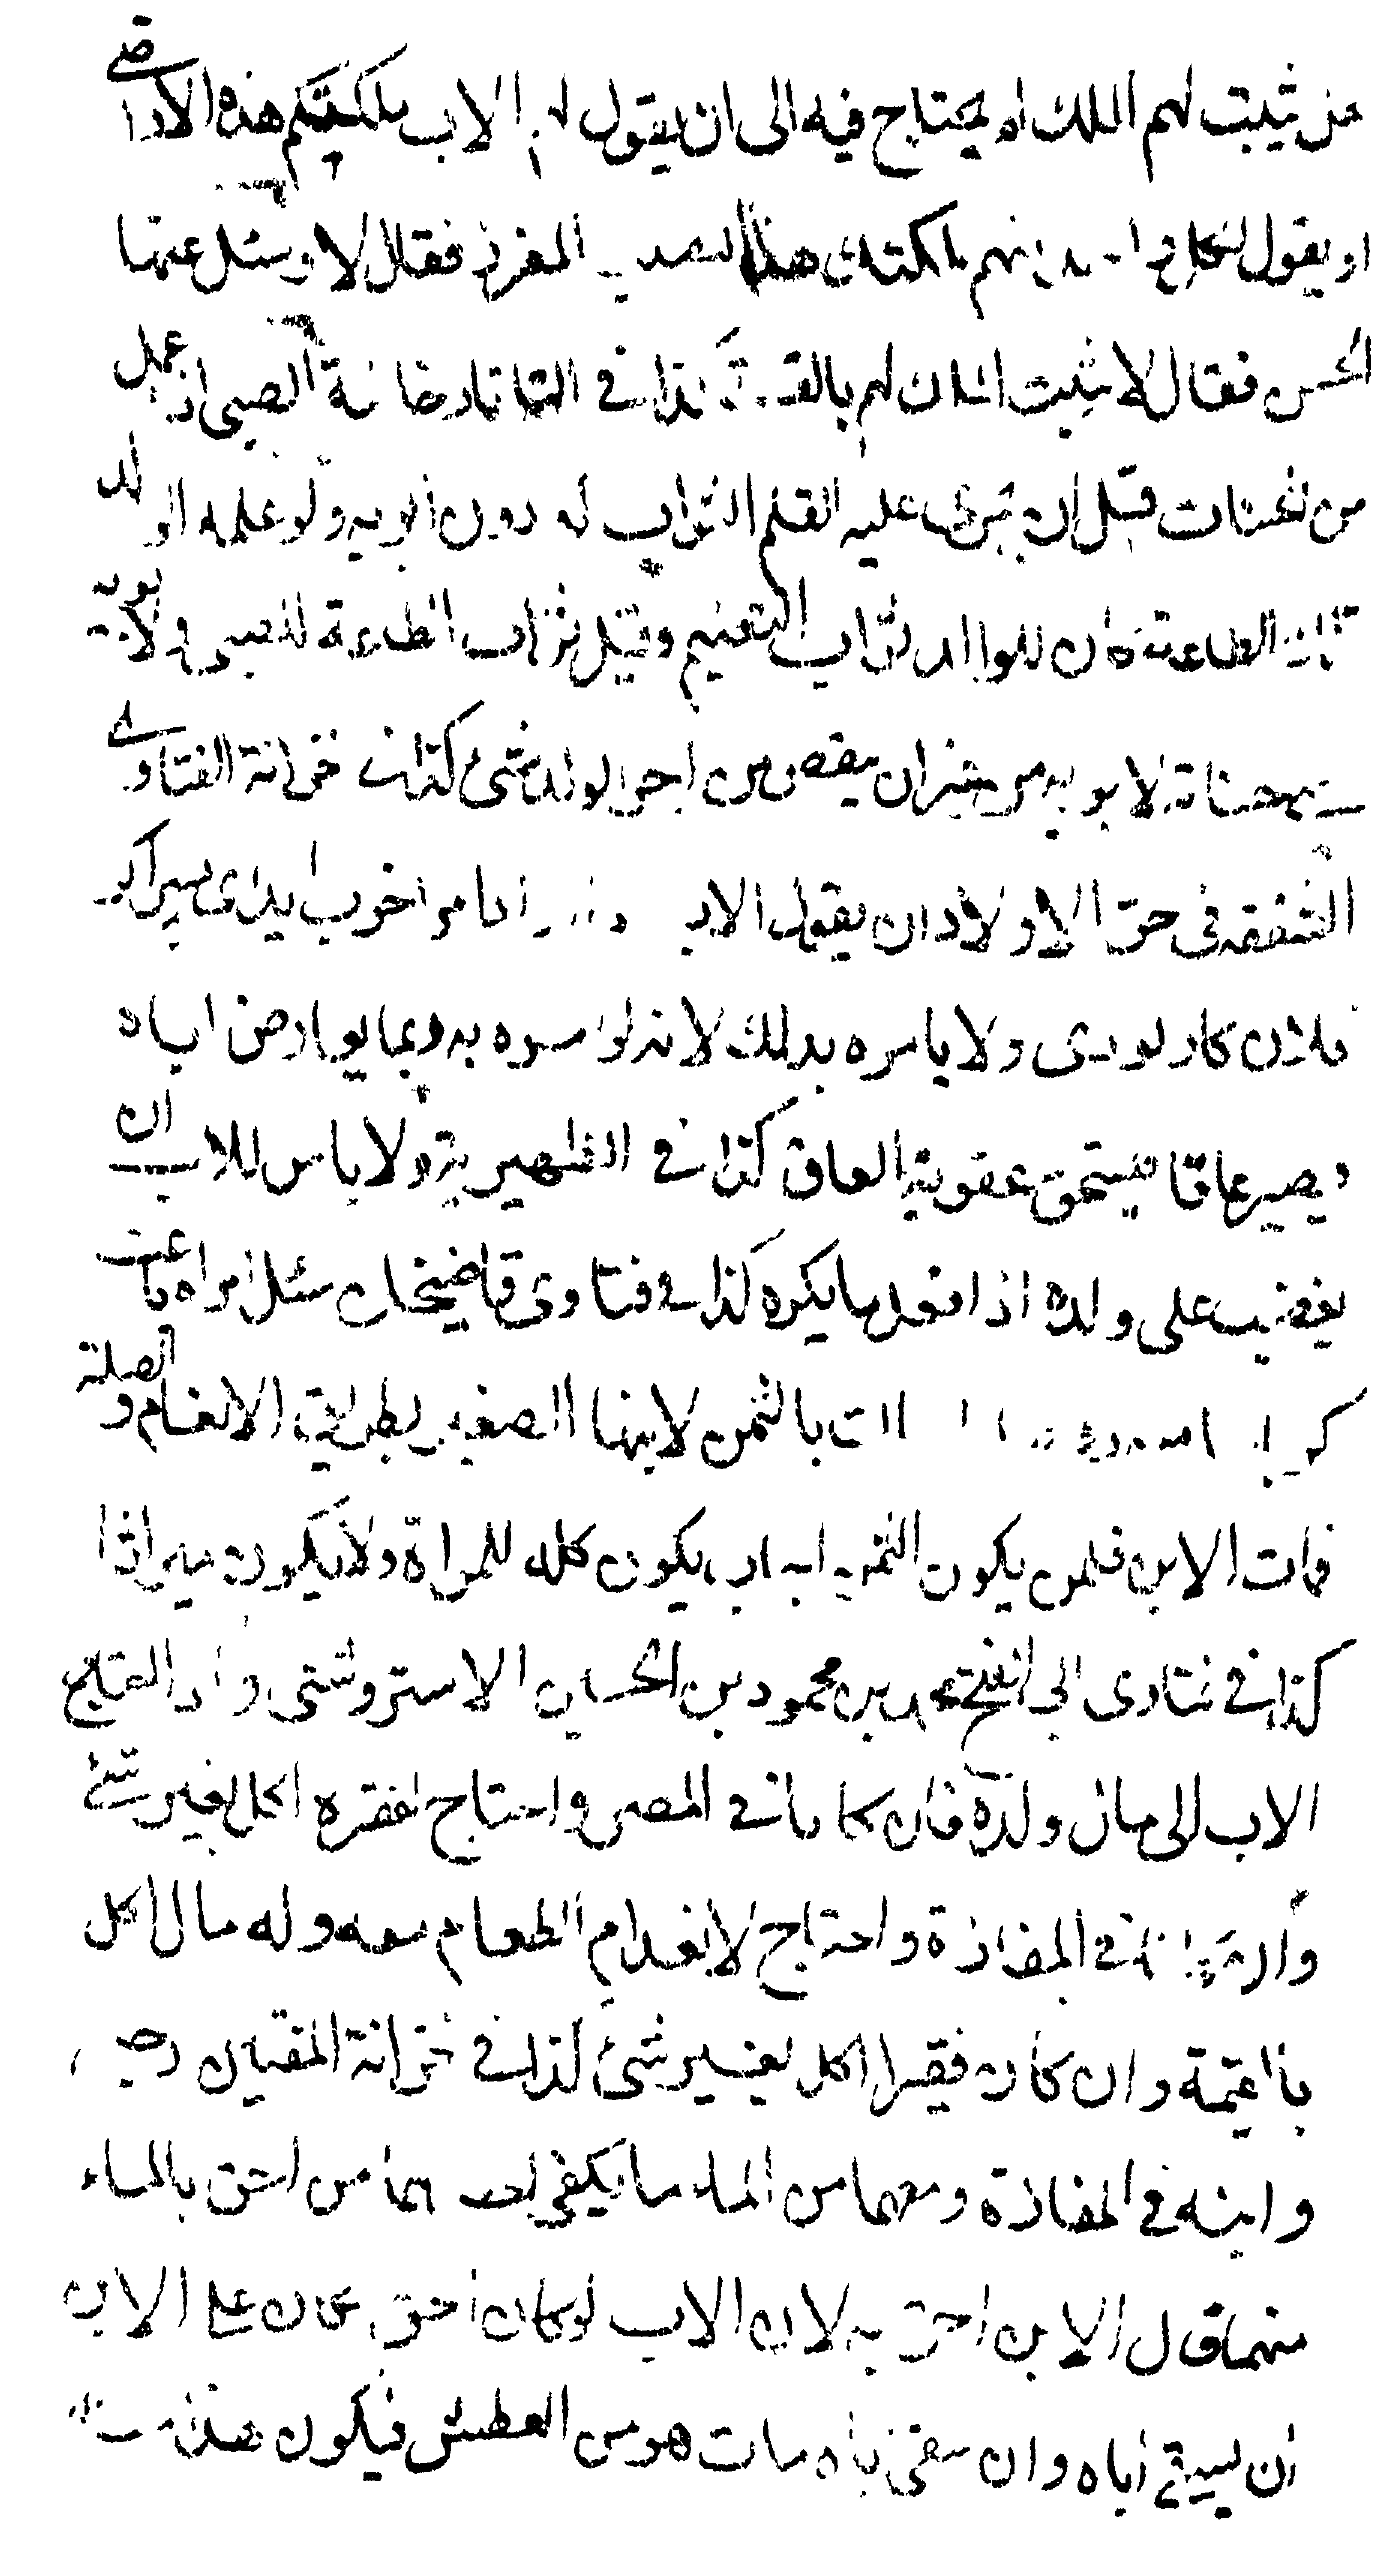 هل يثبت لهم الملك ام يحتاج فيه الى ان يقول لهم الاب ملكتكم هذه الاراضي
او يقول لكل واحد منهم ملكتك هذا النصيب المفرز فقال لا وسئل عنها
الحسن فقال لا يثبت الملك لهم بالقسمة كذا في التاتارخانية الصبي اذا عمل
من الحسنات قبل ان يجرى عليه القلم الثواب له دون ابويه ولو علمه الوالد
تلك الطاعة كان للوالد ثواب التعليم وقيل ثواب الطاعة للصبي ولابويه
حسناته لابويه من غير ان ينقص من اجر الولد شئ كذا في خزانة الفتاوى
الشفقة في حق الاولاد ان يقول الاب خوب ايداى پسر اكر
فلان كار بودى ولا يامره بذلك لانه لو امره به ربما يعارض اباه
ويصير عاقا فيستحق عقوبة العاق كذا في الظهيرية ولا باس للاب ان
يغضب على ولده اذا فعل ما يكره كذا في فتاوى قاضيخان سئل امراة باعت
بالثمن لابنها الصغير بطريق الانعام والصلة
فمات الابن فلمن يكون الثمن يكون كله للمراة ولا يكون ميراثا
كذا في فتاوى ابي الفتح محمد بن محمود بن الحسين الاستروشنى واذا احتاج
الاب الى مال ولده فان كانا في المصر واحتاج لفقره اكل بغير شئ
وان كانا في المفازة واحتاج لانعدام الطعام معه وله مال اكل
بالقيمة وان كان فقيرا اكل بغير شئ كذا في خزانة المفتين رجل
وابنه في المفازة ومعهما من الماء ما يكفي لاحدهما من احق بالماء
منهما قال الابن احق به لان الاب لو كان احق لكان على الابن
ان يسقي اباه وان سقى اباه مات هو من العطش فيكون هذا منه